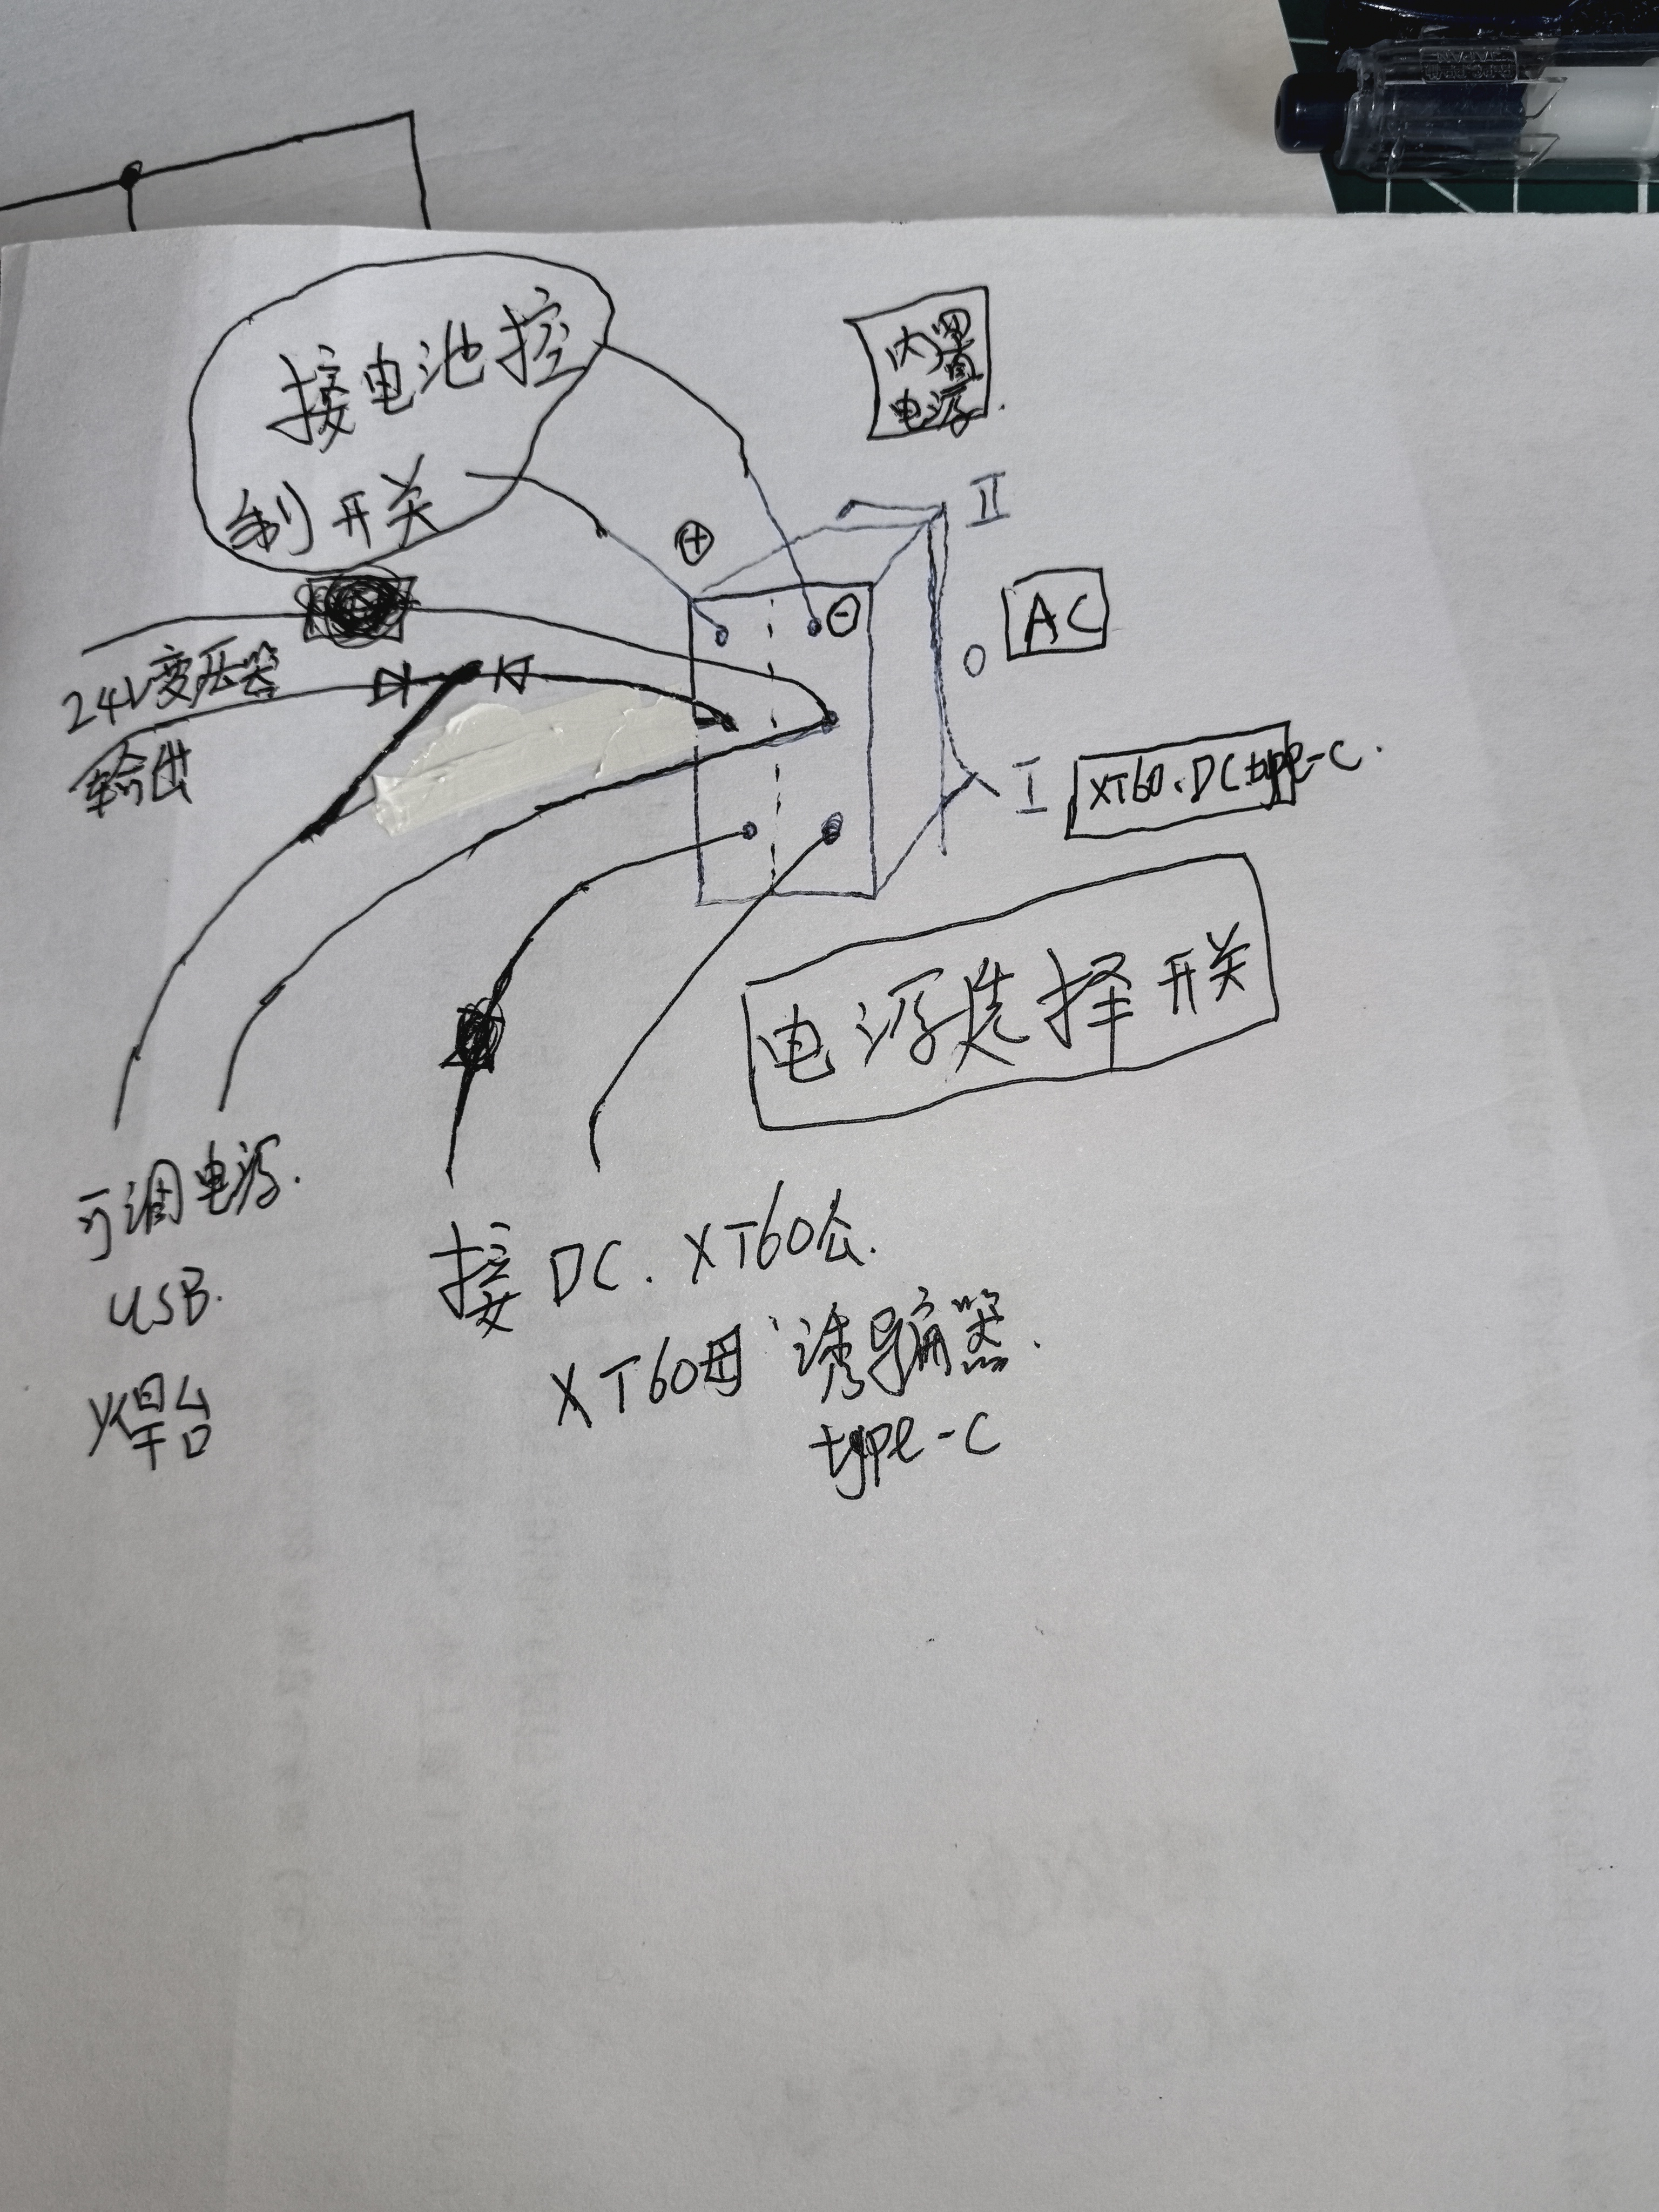 接电池控
制开关
内置
电源.
⊕
II
⊖
AC
O
24V变压器
输出
I
XT60.DC type-C.
电源选择开关
可调电源.
USB.
焊台
接DC.XT60公.
XT60母、诱骗器.
type-C
JAPAN